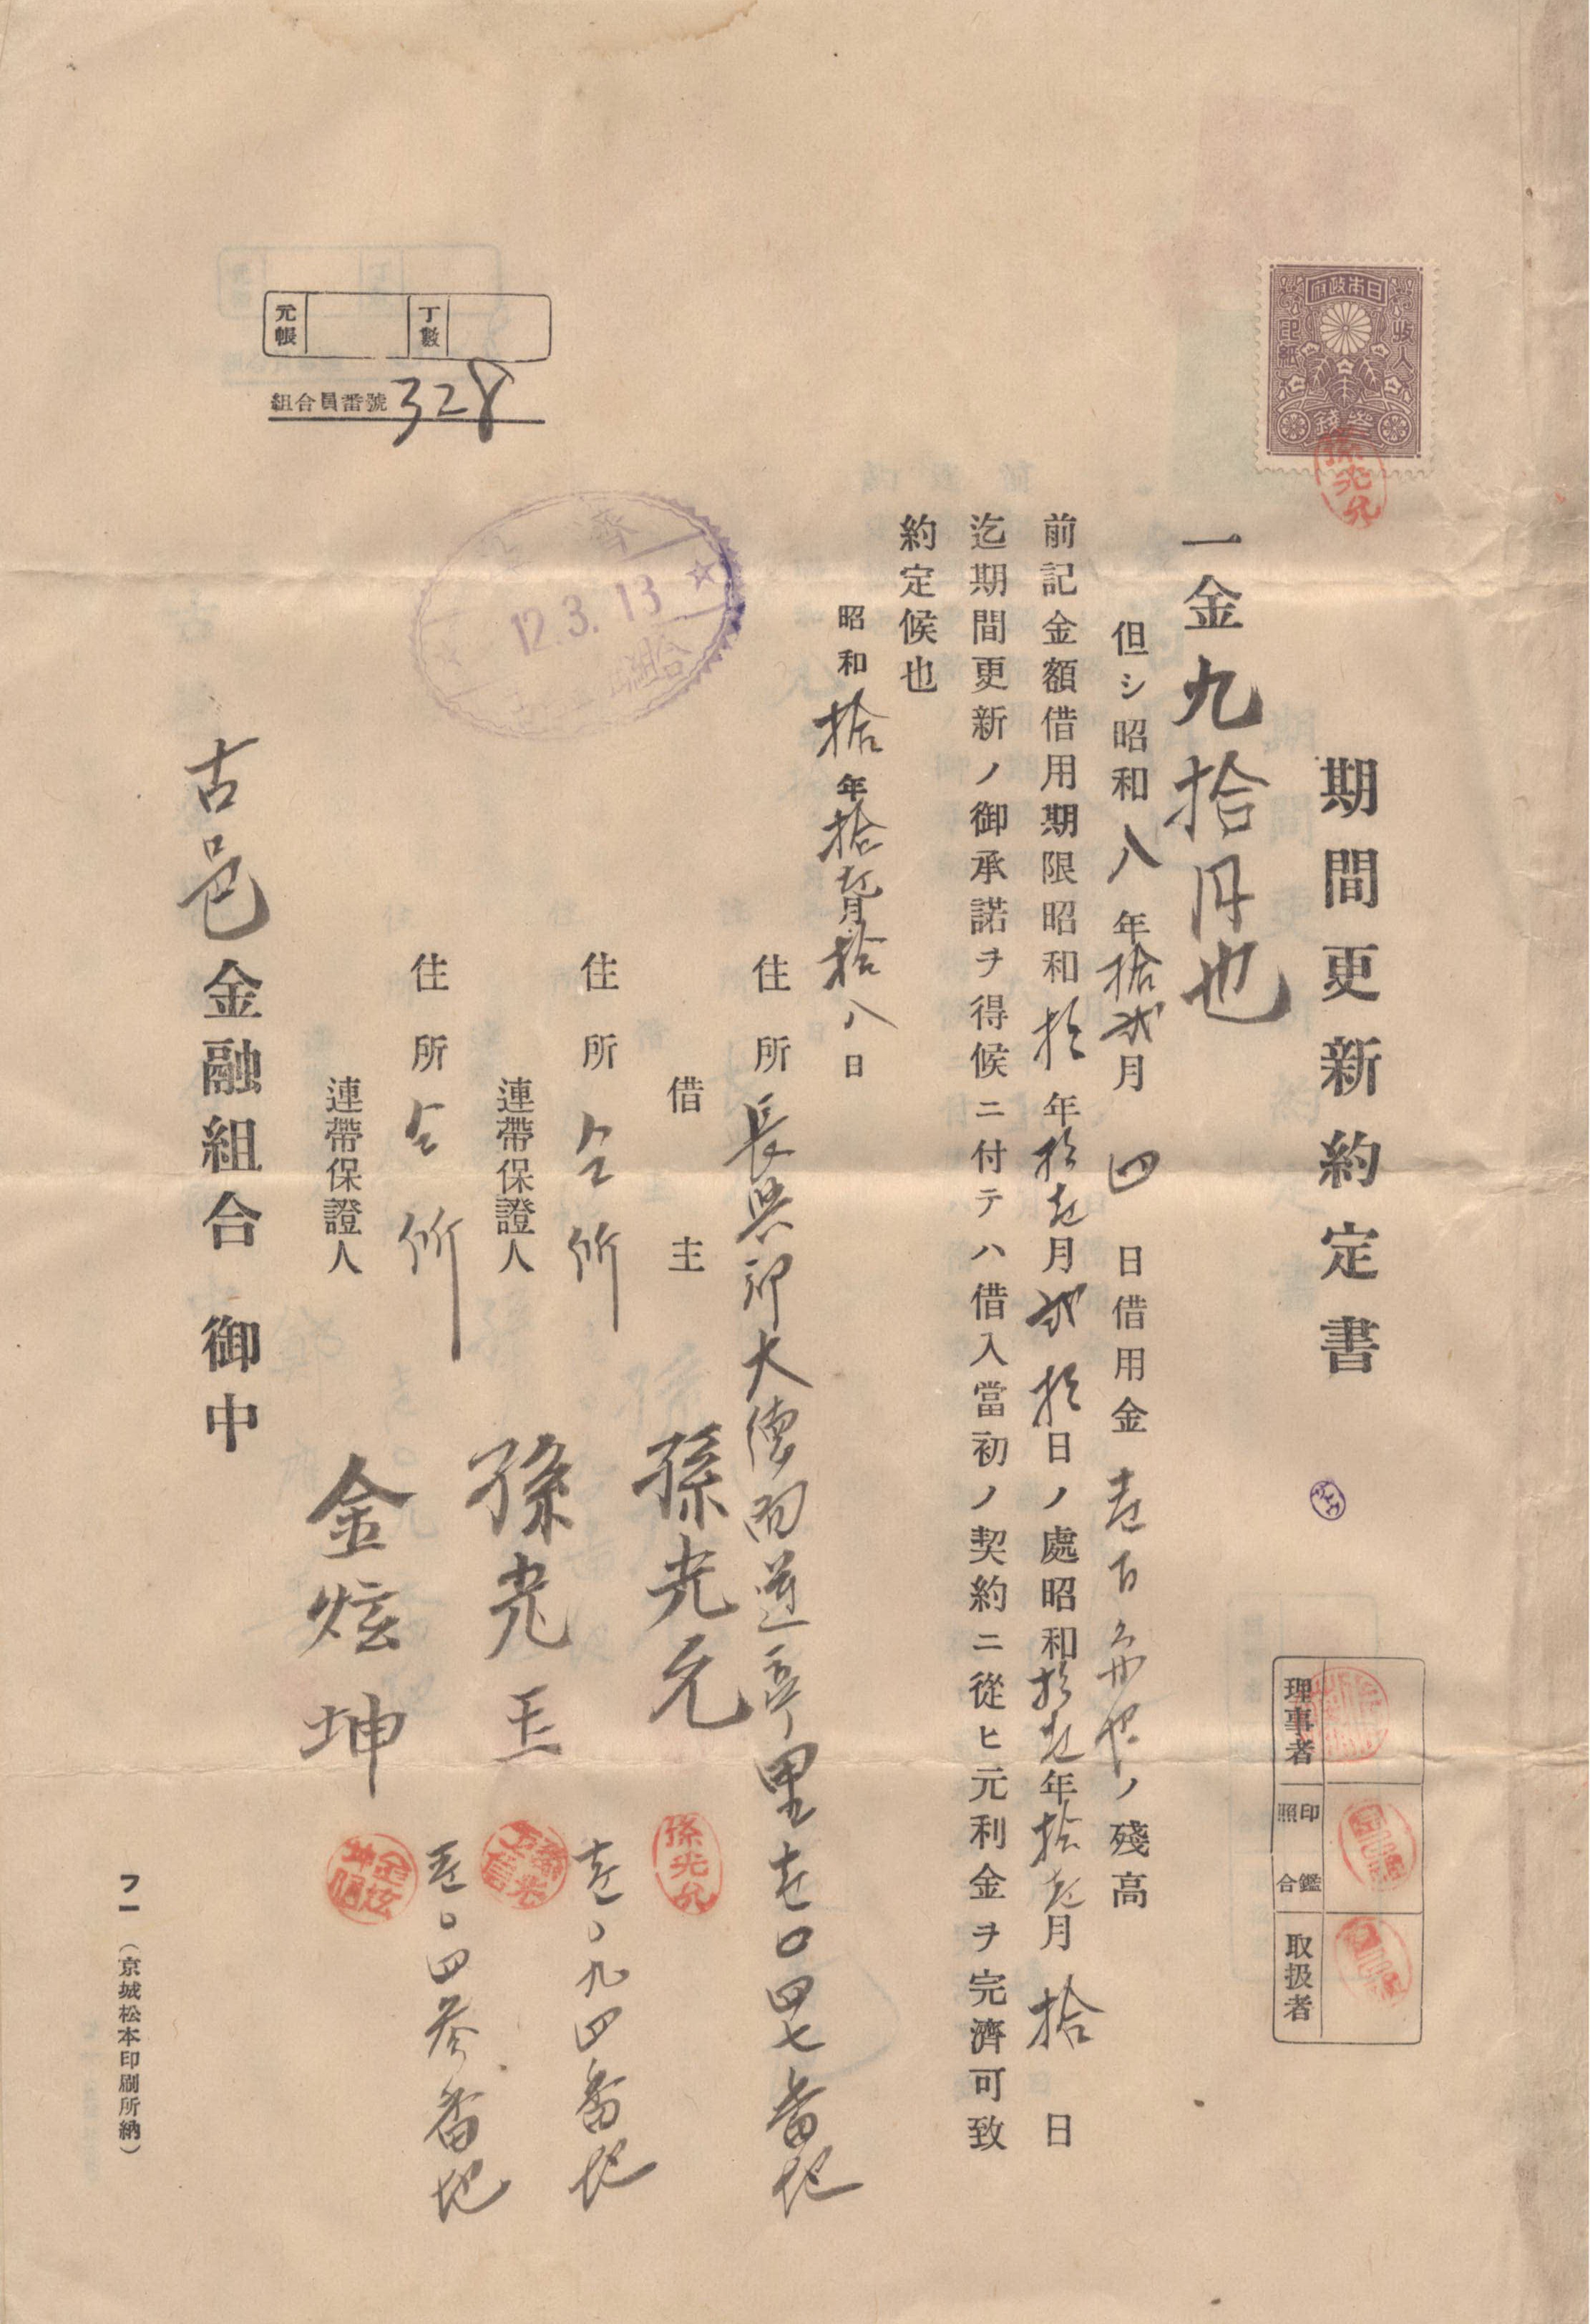 日本政府
收入印紙
參錢
孫光允
期間更新約定書
一金九拾円也
但シ昭和八年拾貳月四日借用金壱百円也ノ殘高
前記金額借用期限昭和拾年拾壱月貳拾日ノ處昭和拾壱年拾壱月拾日
迄期間更新ノ御承諾ヲ得候ニ付テハ借入當初ノ契約ニ從ヒ元利金ヲ完濟可致
約定候也
昭和拾年拾壱月拾八日
住所長興郡大德面蓮亭里壱〇四七番地
借主 孫光允
孫光允
住所 仝所 壱〇九四番地
連帶保證人 孫光玉
住所 仝所 壱〇四參番地
連帶保證人 金炫坤
古邑金融組合 御中
理事者
印鑑照合
取扱者
元帳
丁數
組合員番號 328
濟
12.3.13
組合
フ一 (京城松本印刷所納)